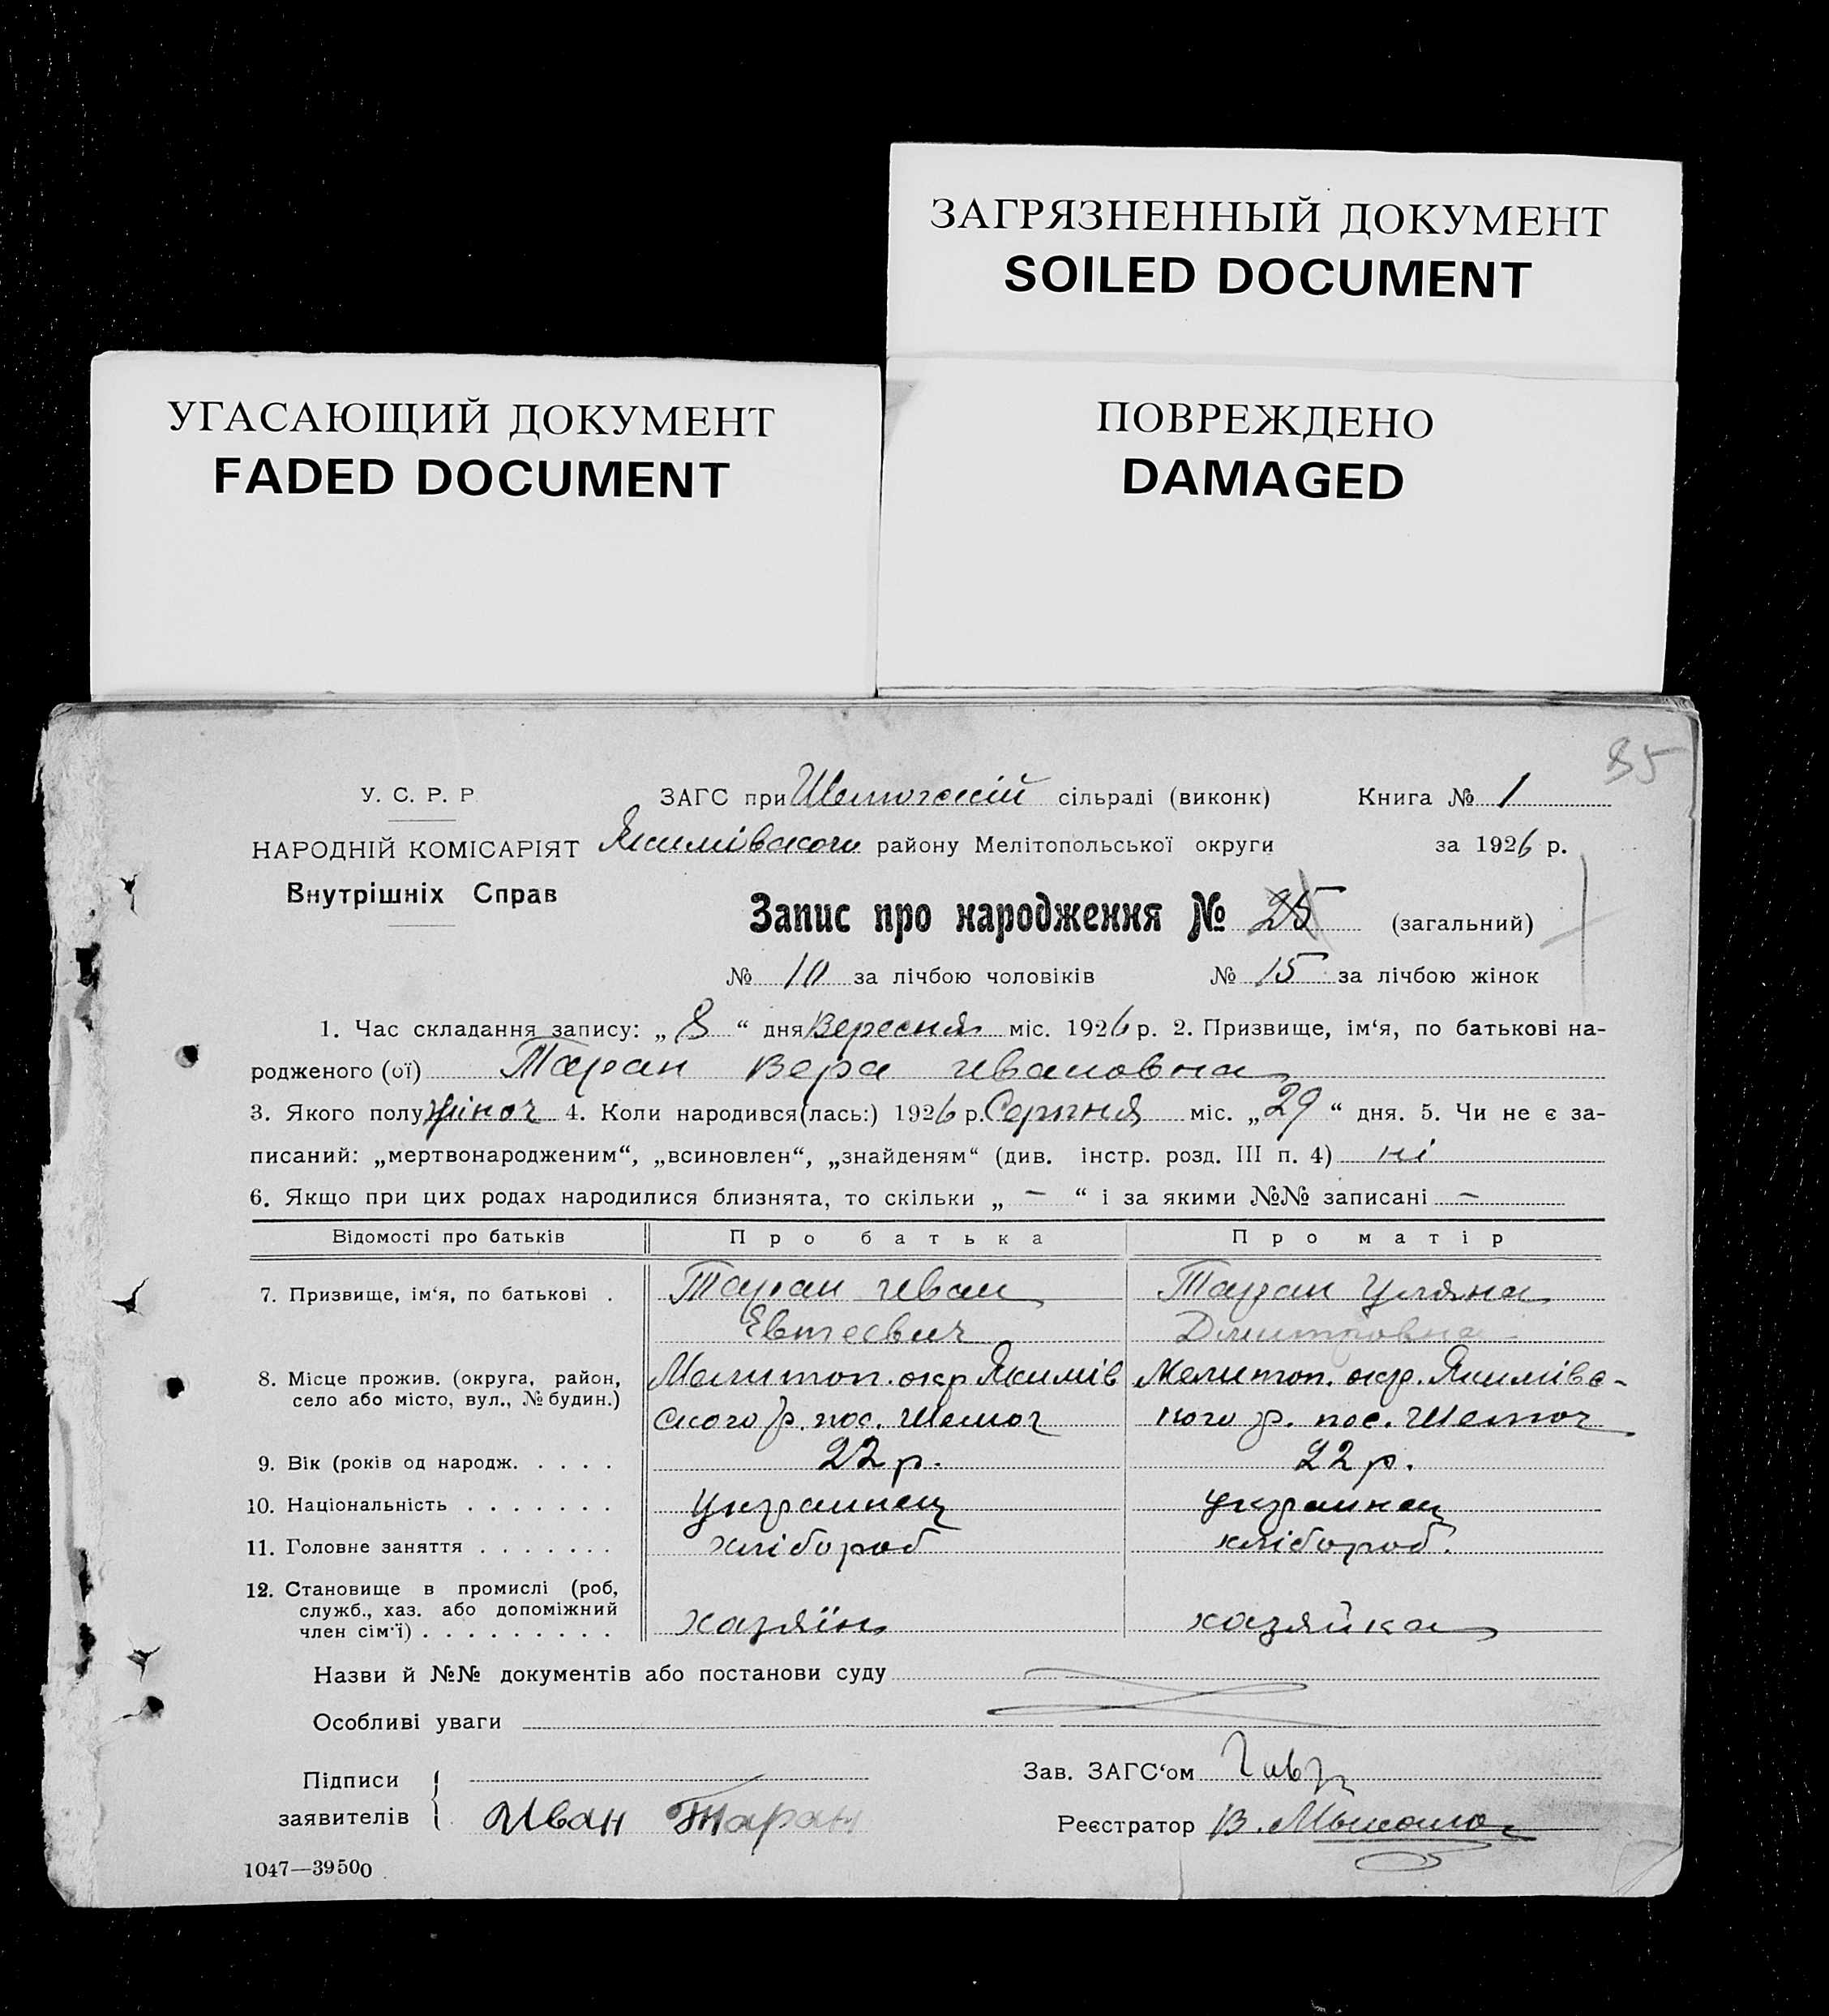 ЗАГРЯЗНЕННЫЙ ДОКУМЕНТ
SOILED DOCUMENT
УГАСАЮЩИЙ ДОКУМЕНТ
FADED DOCUMENT
ПОВРЕЖДЕНО
DAMAGED
85
У. С. Р. Р
ЗАГС при сільраді (виконк)
Книга № 1
НАРОДНІЙ КОМІСАРІЯТ
Якимівського району Мелітопольської округи
за 1926 р.
Внутрішніх Справ
Запис про народження № 25 (загальний)
№ 10 за лічбою чоловіків № 15 за лічбою жінок
1. Час складання запису: „ 8 “ дня Вересня міс. 1926 р. 2. Призвище, ім‘я, по батькові на-
родженого (ої) Таран Вера Ивановна
3. Якого полу жіноч 4. Коли народився(лась:) 1926 р. Серпня міс. „ 29 “ дня. 5. Чи не є за-
писаний: „мертвонародженим“, „всиновлен“, „знайденям“ (див. інстр. розд. III п. 4) ні
6. Якщо при цих родах народилися близнята, то скільки „ — “ і за якими №№ записані —
Відомості про батьків
Про батька
Про матір
7. Призвище, ім‘я, по батькові .
Таран Иван
Евтеевич
Таран Уляна
Дмитровна
8. Місце прожив. (округа, район,
село або місто, вул., № будин.)
Мелитоп. окр Якимів
ского р. пос. Шемог
Мелитоп. окр. Якимівс-
кого р. пос. Шемог
9. Вік (років од народж. . . . .
22 р.
22 р.
10. Національність . . . . . . .
Украинец
Украинец
11. Головне заняття . . . . . . .
хлібороб
хлібороб.
12. Становище в промислі (роб,
служб., хаз. або допоміжний
член сім‘ї) . . . . . . . . .
хазяїн
хазяйка
Назви й №№ документів або постанови суду
Особливі уваги
Підписи
заявителів
Иван Таран
Зав. ЗАГС‘ом
Реєстратор В.
1047—39500